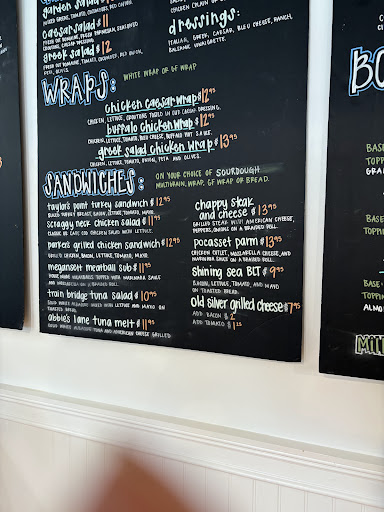 garden salad $
caesar salad $11
greek salad $12
dressings:
ITALIAN, GREEK, CAESAR, BLEU CHEESE, RANCH,
BALSAMIC VINAIGRETTE.
WRAPS:
WHITE WRAP OR GF WRAP
chicken caesar wrap $12.95
CHICKEN, LETTUCE, CROUTONS TOSSED IN OUR CAESAR DRESSING.
buffalo chicken wrap $12.95
CHICKEN, LETTUCE, TOMATO, BLEU CHEESE, BUFFALO HOT SAUCE.
greek salad chicken wrap $13.95
CHICKEN, LETTUCE, TOMATO, ONION, FETA AND OLIVES.
SANDWICHES:
ON YOUR CHOICE OF SOURDOUGH,
MULTIGRAIN, WRAP, GF WRAP OR BREAD.
taylor's point turkey sandwich $12.95
SLICED TURKEY BREAST, BACON, LETTUCE, TOMATO, MAYO.
scraggy neck chicken salad $11.95
CLASSIC OR CAPE COD CHICKEN SALAD WITH LETTUCE.
parker's grilled chicken sandwich $12.95
GRILLED CHICKEN, BACON, LETTUCE, TOMATO, MAYO.
megansett meatball sub $11.95
HOUSE MADE MEATBALLS TOPPED WITH MARINARA SAUCE
AND MOZZARELLA ON A BRAIDED ROLL.
train bridge tuna salad $10.95
SOLID WHITE ALBACORE WITH LETTUCE AND MAYO ON
TOASTED BREAD.
abbie's lane tuna melt $11.95
SOLID WHITE ALBACORE TUNA AND AMERICAN CHEESE GRILLED
chappy steak
and cheese $13.95
GRILLED STEAK WITH AMERICAN CHEESE,
PEPPERS, ONIONS ON A BRAIDED ROLL.
pocasset parm $13.95
CHICKEN CUTLET, MOZZARELLA CHEESE, AND
MARINARA SAUCE ON A BRAIDED ROLL.
shining sea BLT $9.95
BACON, LETTUCE, TOMATO, AND MAYO
ON TOASTED BREAD.
old silver grilled cheese $7.95
ADD BACON $2
ADD TOMATO $1.25
BO
BASE
TOPPI
GRA
BASE
TOPPI
BASE
TOPPI
ALMO
MIN